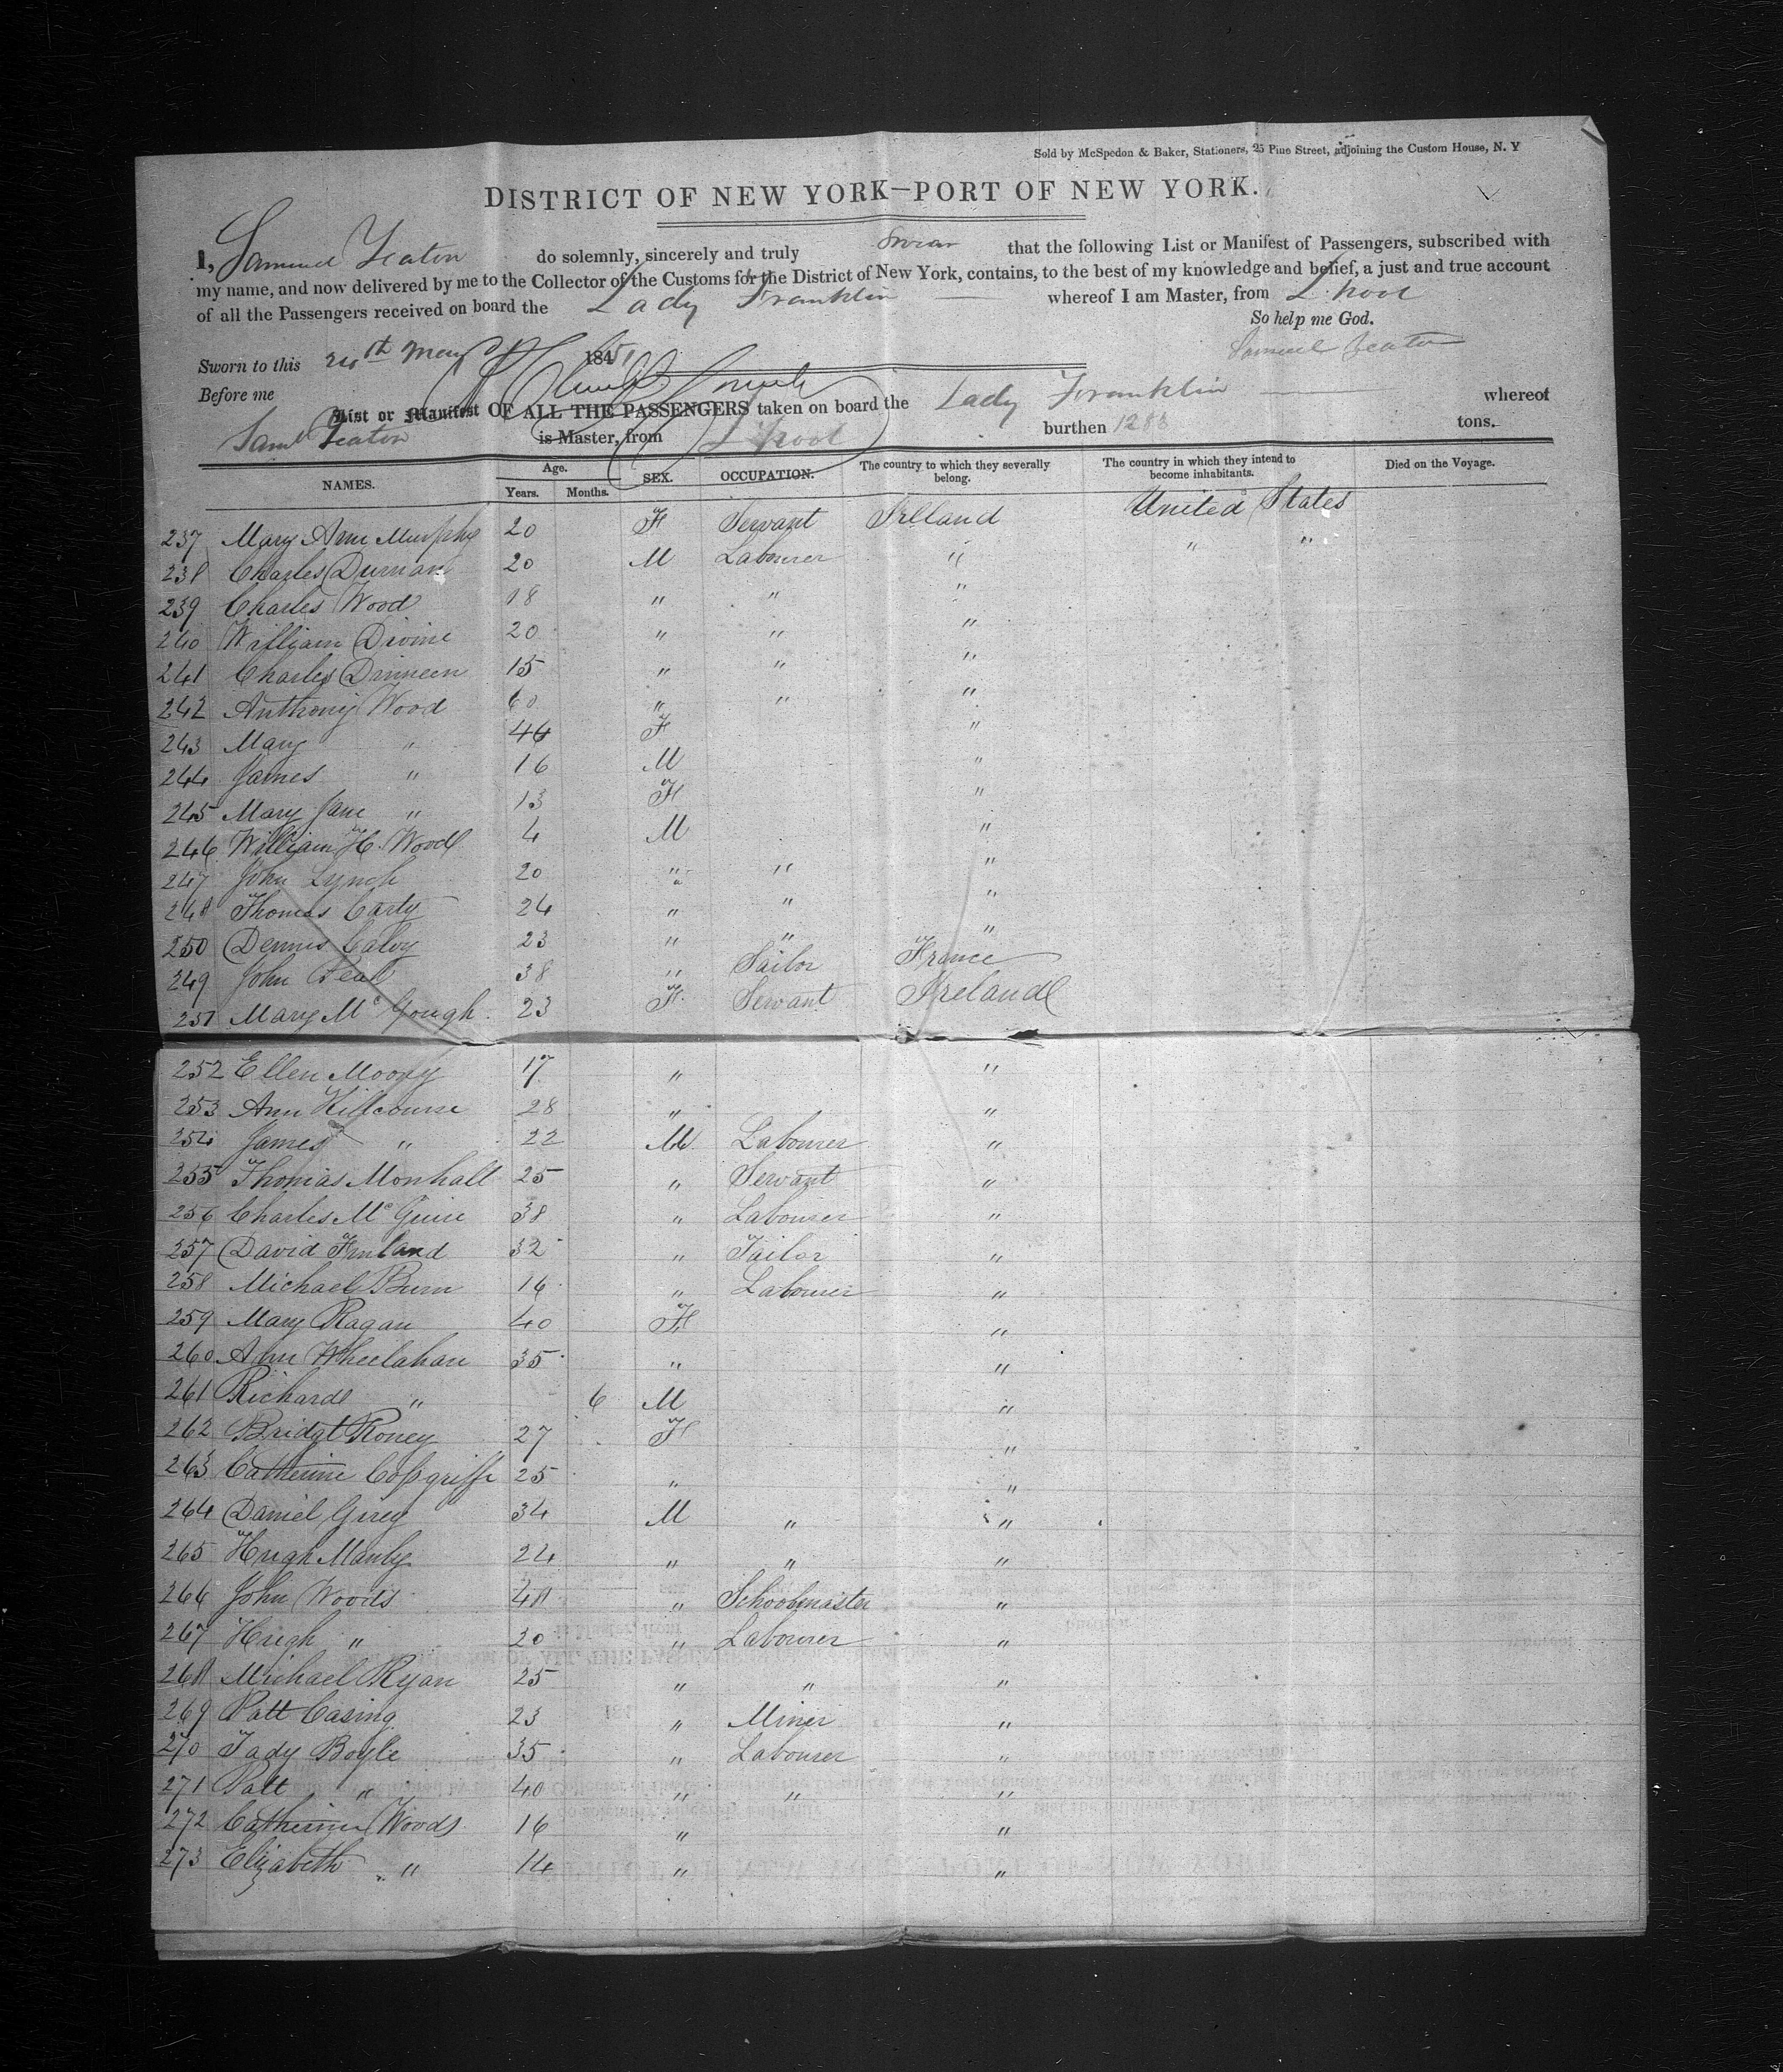 Sold by McSpedon & Baker, Stationers, 25 Pine Street, adjoining the Custom House, N. Y
DISTRICT OF NEW YORK—PORT OF NEW YORK.
I, Samuel Yeaton do solemnly, sincerely and truly Swear that the following List or Manifest of Passengers, subscribed with
my name, and now delivered by me to the Collector of the Customs for the District of New York, contains, to the best of my knowledge and belief, a just and true account
of all the Passengers received on board the Lady Franklin whereof I am Master, from L.pool
So help me God.
Sworn to this 24th May 1851 Samuel Yeaton
Before me
List or Manifest OF ALL THE PASSENGERS taken on board the Lady Franklin whereof
Saml Yeaton is Master, from L.pool burthen 1283 tons.
NAMES. Age. Years. Months. SEX. OCCUPATION. The country to which they severally belong. The country in which they intend to become inhabitants. Died on the Voyage.
237 Mary Ann Murphy 20 F Servant Ireland United States
238 Charles Durnan 20 M Labourer " " "
239 Charles Wood 18 " " "
240 William Divine 20 " " "
241 Charles Drinneen 15 " " "
242 Anthony Wood 60 " " "
243 Mary " 46 F "
244 James " 16 M "
245 Mary Jane " 13 F "
246 William H. Wood 4 M "
247 John Lynch 20 " " "
248 Thomas Carty 24 " " "
250 Dennis Calvy 23 " " "
249 John 38 " Tailor France
251 Mary Mc Gough 23 F Servant Ireland
252 Ellen Moony 17 " "
253 Ann Killcourse 28 " "
254 James " 22 M Labourer "
255 Thomas Monhall 25 " Servant "
256 Charles Mc Guire 38 " Labourer "
257 David 32 " Tailor "
258 Michael Burn 16 " Labourer "
259 Mary Ragan 40 F "
260 Ann Wheelahan 35 " "
261 Richard " 6 M "
262 Bridgt Roney 27 F "
263 Catherine Cossgriffe 25 " "
264 Daniel Girey 34 M " "
265 Hugh Manly 24 " " "
266 John Woods 48 " Schoolmaster "
267 Hugh " 20 " Labourer "
268 Michael Ryan 25 " " "
269 Patt Casing 23 " Miner "
270 Tady Boyle 35 " Labourer "
271 Patt " 40 " " "
272 Catherine Woods 16 " "
273 Elizabeth " 14 " "